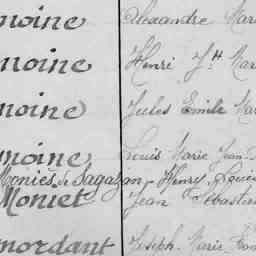 moine Alexandre Mari
moine Henri Jh Mar
moine Jules Emile Ma
moine Louis Marie Jean
Moniès de Sagazan Henry
Moniet Jean Sébastie
mordant Joseph Marie